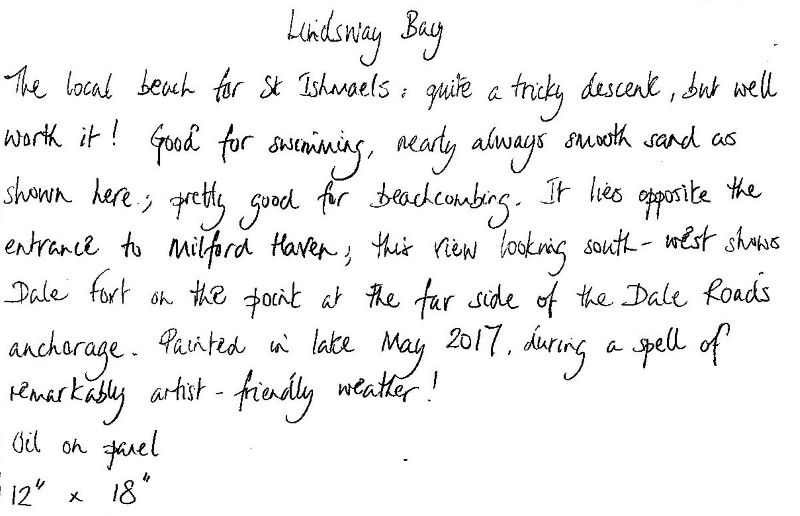 Lindsway Bay
The local beach for St Ishmaels: quite a tricky descent, but well
worth it! Good for swimming, nearly always smooth sand as
shown here; pretty good for beachcombing. It lies opposite the
entrance to Milford Haven; this view looking south-west shows
Dale Fort on the point at the far side of the Dale Roads
anchorage. Painted in late May 2017, during a spell of
remarkably artist-friendly weather!
Oil on panel
12" x 18"